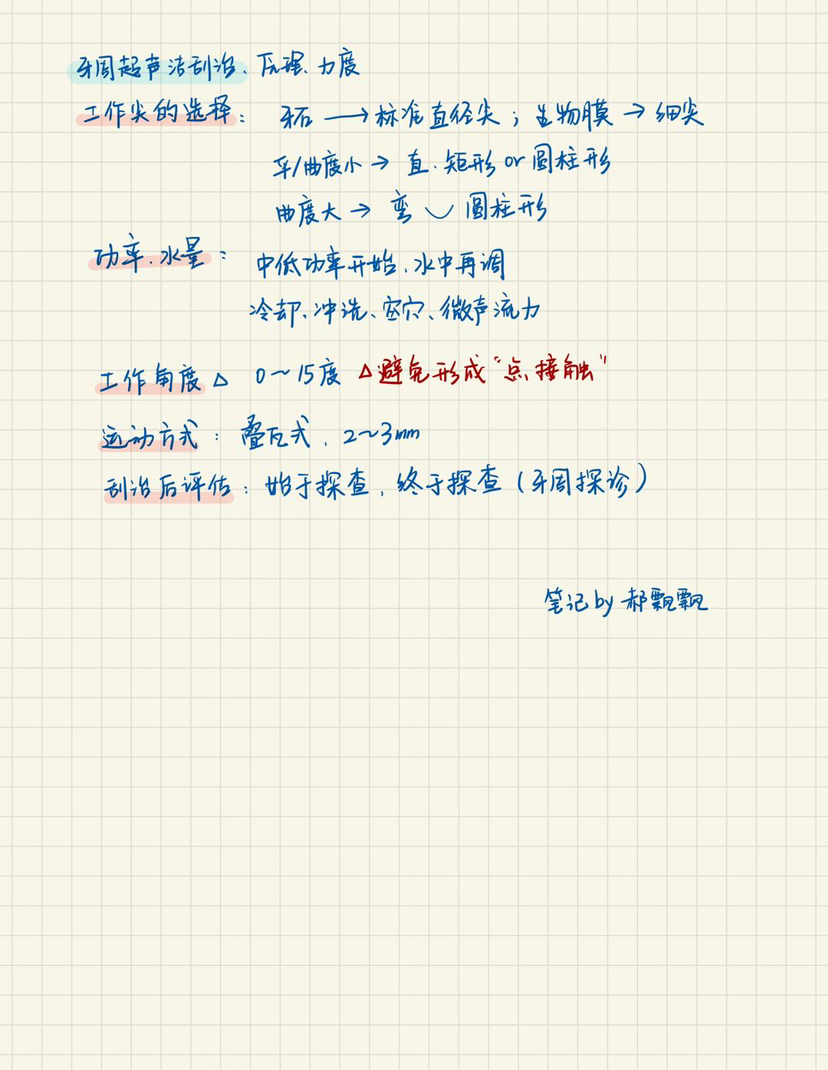 牙周超声洁刮治、压强、力度
工作尖的选择: 牙石 → 标准直径尖; 生物膜 → 细尖
平/曲度小 → 直. 矩形 or 圆柱形
曲度大 → 弯 圆柱形
功率.水量: 中低功率开始.水中再调
冷却、冲洗、空穴、微声流力
工作角度 △ 0~15度 △避免形成“点接触”
运动方式: 叠瓦式, 2~3mm
刮治后评估: 始于探查, 终于探查 (牙周探诊)
笔记by 郝飘飘